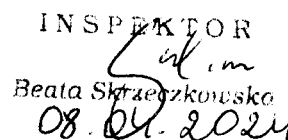 INSPEKTOR
Beata Skrzeczkowska
08.04.2024